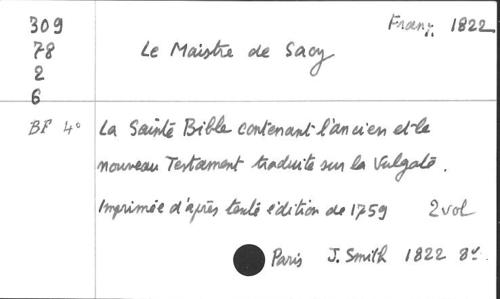 309
78
2
6
Franç. 1822
Le Maistre de Sacy
BF 4°
La Sainte Bible contenant l'ancien et le
nouveau Testament traduite sur la Vulgate.
Imprimée d'après texte édition de 1759 2 vol
Paris J. Smith 1822 8°.